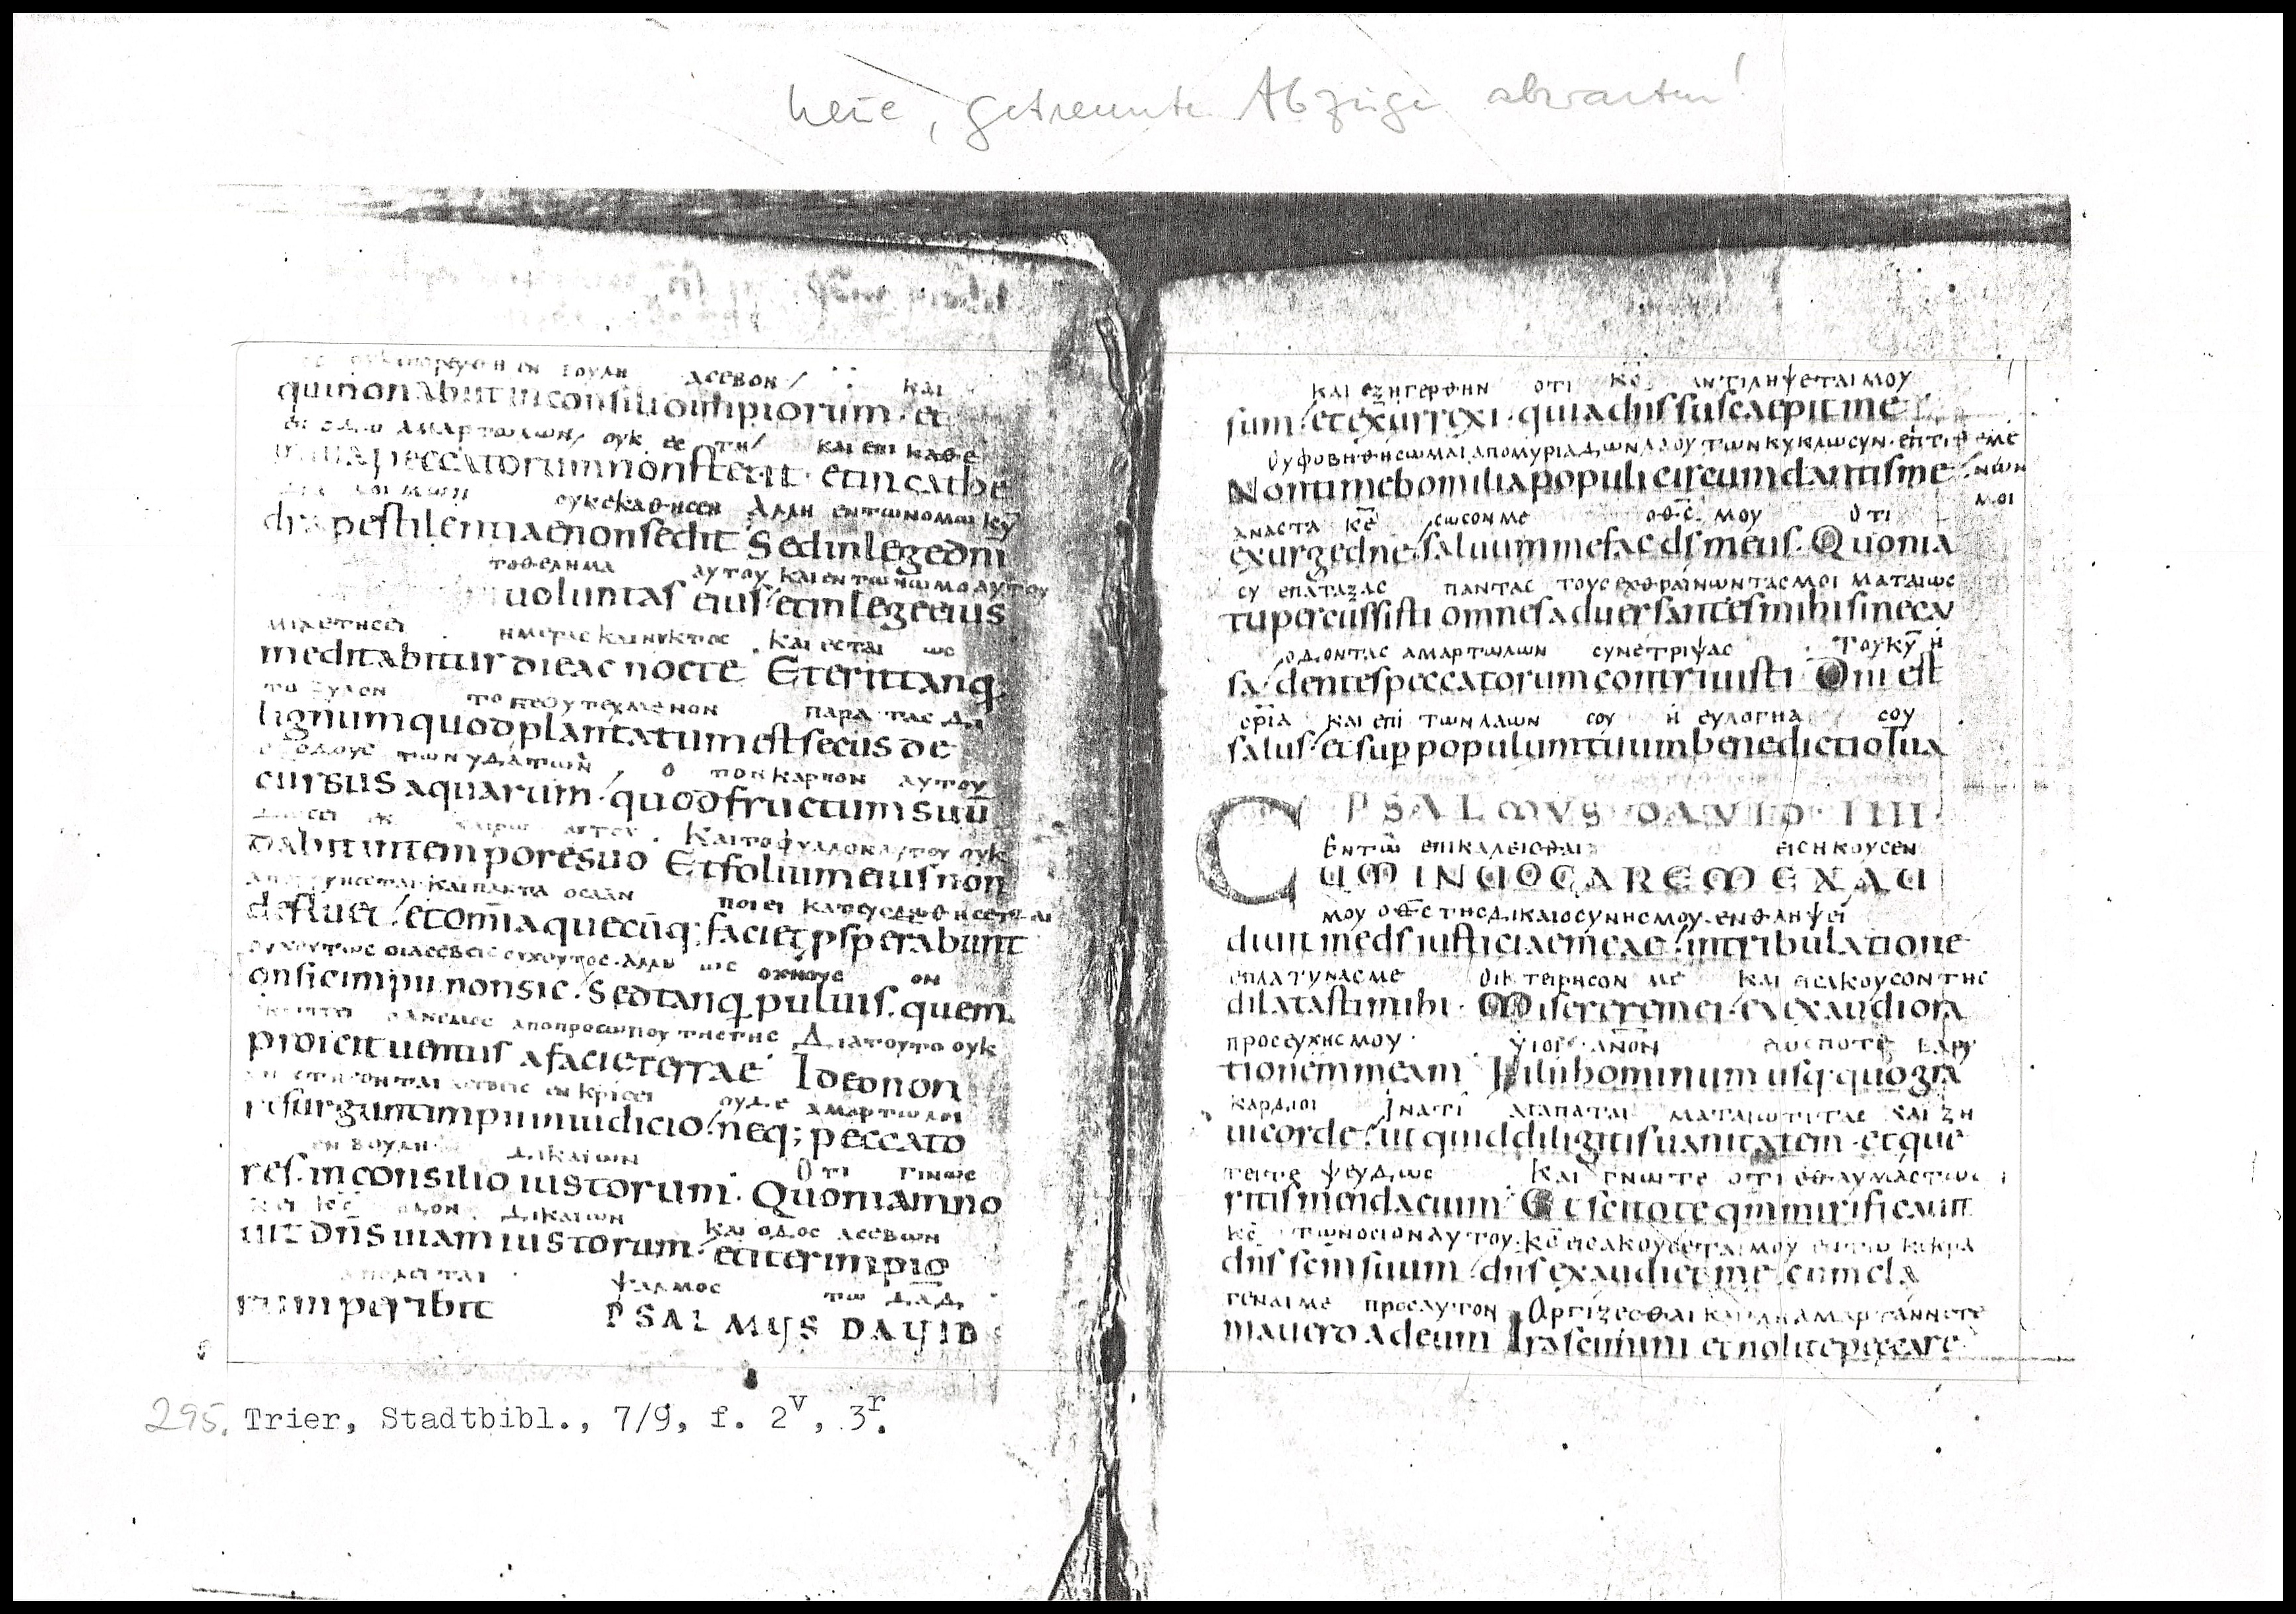 neue, getrennte Abzüge abwarten!
ουκ επορευθη εν βουλη ασεβον και
qui non abiit in consilio impiorum · et
οδω αμαρτωλων ουκ εστη και επι καθε
in uia peccatorum non stetit · et in cathe
λοιμων ουκ εκαθησεν Αλλη εν τω νομω κ̅υ̅
dra pestilentiae non sedit Sed in lege dn̅i
το θελημα αυτου και εν τω νωμο αυτου
uoluntas eius et in lege eius
μιλετησει ημερας και νυκτος Και εσται ως
meditabitur die ac nocte Et erit tanq̅
το ξυλον το πεφυτευμενον παρα τας δι
lignum quod plantatum est secus de
εξοδους των υδατων ο τον καρπον αυτου
cursus aquarum · quod fructum suu̅
δωσει καιρω αυτου · Και το φυλλον αυτου ουκ
dabit in tempore suo Et folium eius non
και παντα οσα αν
ποιει κατευοδωθησεται
defluet · et om̅ia quecu̅q; faciet p̱sperabunt
ουχ ουτως οι ασεβεις ουχ ουτος · αλλη ως ο χνους ον
on sic impii non sic · Sed tanq̅ puluis · quem
ο ανεμος απο προσωπου της γης Δια τουτο ουκ
proicit uentus a facie terrae Ideo non
ασεβεις εν κρισει ουδε αμαρτωλοι
resurgunt impii in iudicio · neq; peccato
εν βουλη δικαιων Οτι γινωσ
res · in consilio iustorum · Quoniam no
κ̅ς̅ οδον δικαιων και οδος ασεβων
uit dn̅s uiam iustorum · et iter impio
απολειται ψαλμος τω δ̅α̅δ̅
rum peribit PSALMUS DAUID
και εξηγερθην οτι κ̅ο̅ς αντιληψεται μου
sum · et exurrexi · quia dn̅s suscaepit me
Ου φοβηθησωμαι απο μυριαδων λαου των κυκλω συν · επιτιθεμε
Non timebo milia populi circumdantis me
νων
μοι
αναστα κ̅ε̅ σωσον με ο θ̅ς̅ μου Οτι
exurge dn̅e saluum me fac d̅s̅ meus · Quonia
συ επαταξας παντας τους εχθραινωντας μοι ματαιως
tu percussisti omnes aduersantes mihi sine cau
οδοντας αμαρτωλων συνετριψας Του κ̅υ̅ η
sa · dentes peccatorum contriuisti Dn̅i est
σρια και επι των λαων σου η ευλογηα σου
salus · et sup populum tuum benedictio tua
PSALMVS DAVID IIII ·
Εν τω επικαλεισθαι εισηκουσεν
CUM INUOCAREM EXAU
μου ο θ̅ς̅ της δικαιοσυνης μου · εν θληψει
diuit me d̅s̅ iusticiae meae · in tribulatione
επλατυνας με Οικτειρησον με και εισακουσον της
dilatasti mihi · Miserere mei · et exaudi ora
προσευχης μου υιοι α̅ν̅ο̅ν̅ εως ποτε βαρυ
tionem meam Filii hominum usq; quo gra
καρδιοι Ινατι αγαπαται ματαιωτιτας και ζη
ui corde · ut quid diligitis uanitatem · et que
τειτε ψευδως Και γνωτε οτι εθαυμαστωσε
ritis mendacium Et scitote qm̅ mirificauit
κ̅ς̅ τωνοσιον αυτου · κ̅ς̅ εισακουσεται μου εν τω κεκρα
dn̅s sc̅m suum · dn̅s exaudiet me cum cla
γεναι με προς αυτον Οργιζεσθαι και μη αμαρτανηετε
mauero ad eum Irascimini et nolite peccare
295. Trier, Stadtbibl., 7/9, f. 2v, 3r.